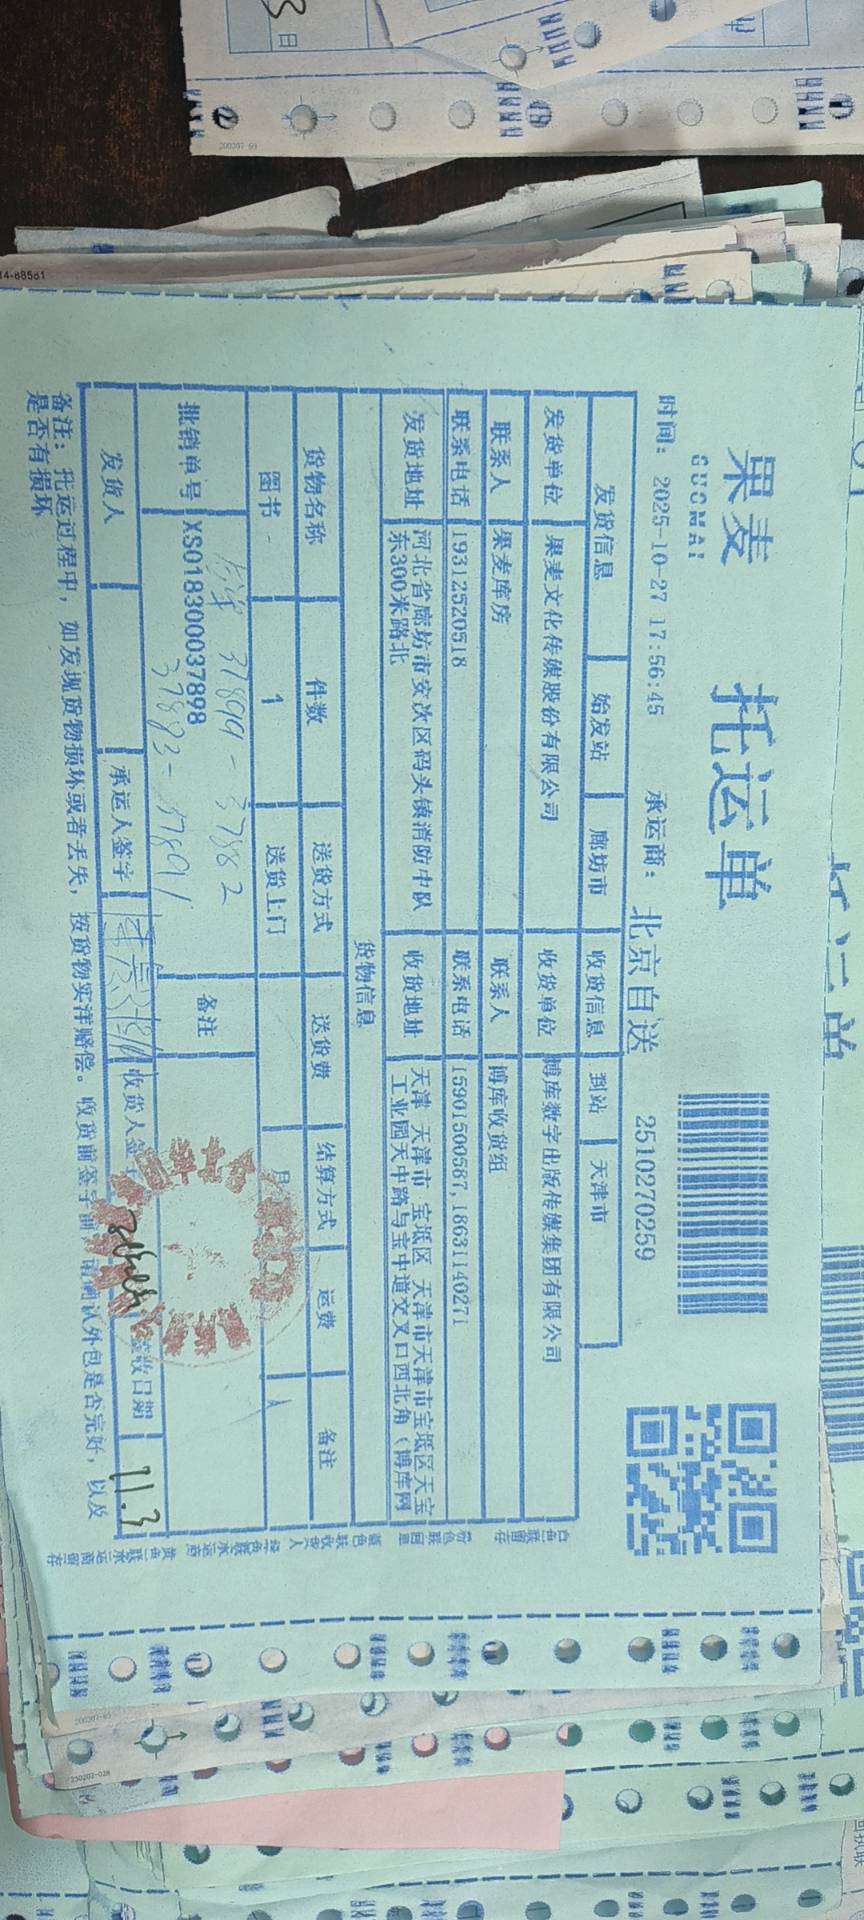 果麦
GUOMAI
托运单
时间: 2025-10-27 17:56:45 承运商: 北京自送 2510270259
发货信息 始发站 廊坊市 收货信息 到站 天津市
发货单位 果麦文化传媒股份有限公司 收货单位 博库数字出版传媒集团有限公司
联系人 果麦库房 联系人 博库收货组
联系电话 19312520518 联系电话 15901500587,18631140271
发货地址 河北省廊坊市安次区码头镇消防中队东300米路北 收货地址 天津 天津市 宝坻区 天津市天津市宝坻区天宝工业园天中路与宝中道交叉口西北角(博库网
货物信息
货物名称 件数 送货方式 送货费 结算方式 运费 备注
图书 1 送货上门 月
批销单号 XS018300037898 备注
37899-37882
37883-37891
发货人 承运人签字 收货人签字 签收日期 11.3
备注: 托运过程中, 如发现货物损坏或者丢失, 按货物实洋赔偿。收货前签字前, 请确认外包是否完好, 以及
是否有损坏
白色联留存 粉色联回单 蓝色联收货人 绿色联承运商 黄色联承运商留存
14-88581
200207-60
230202-028
日